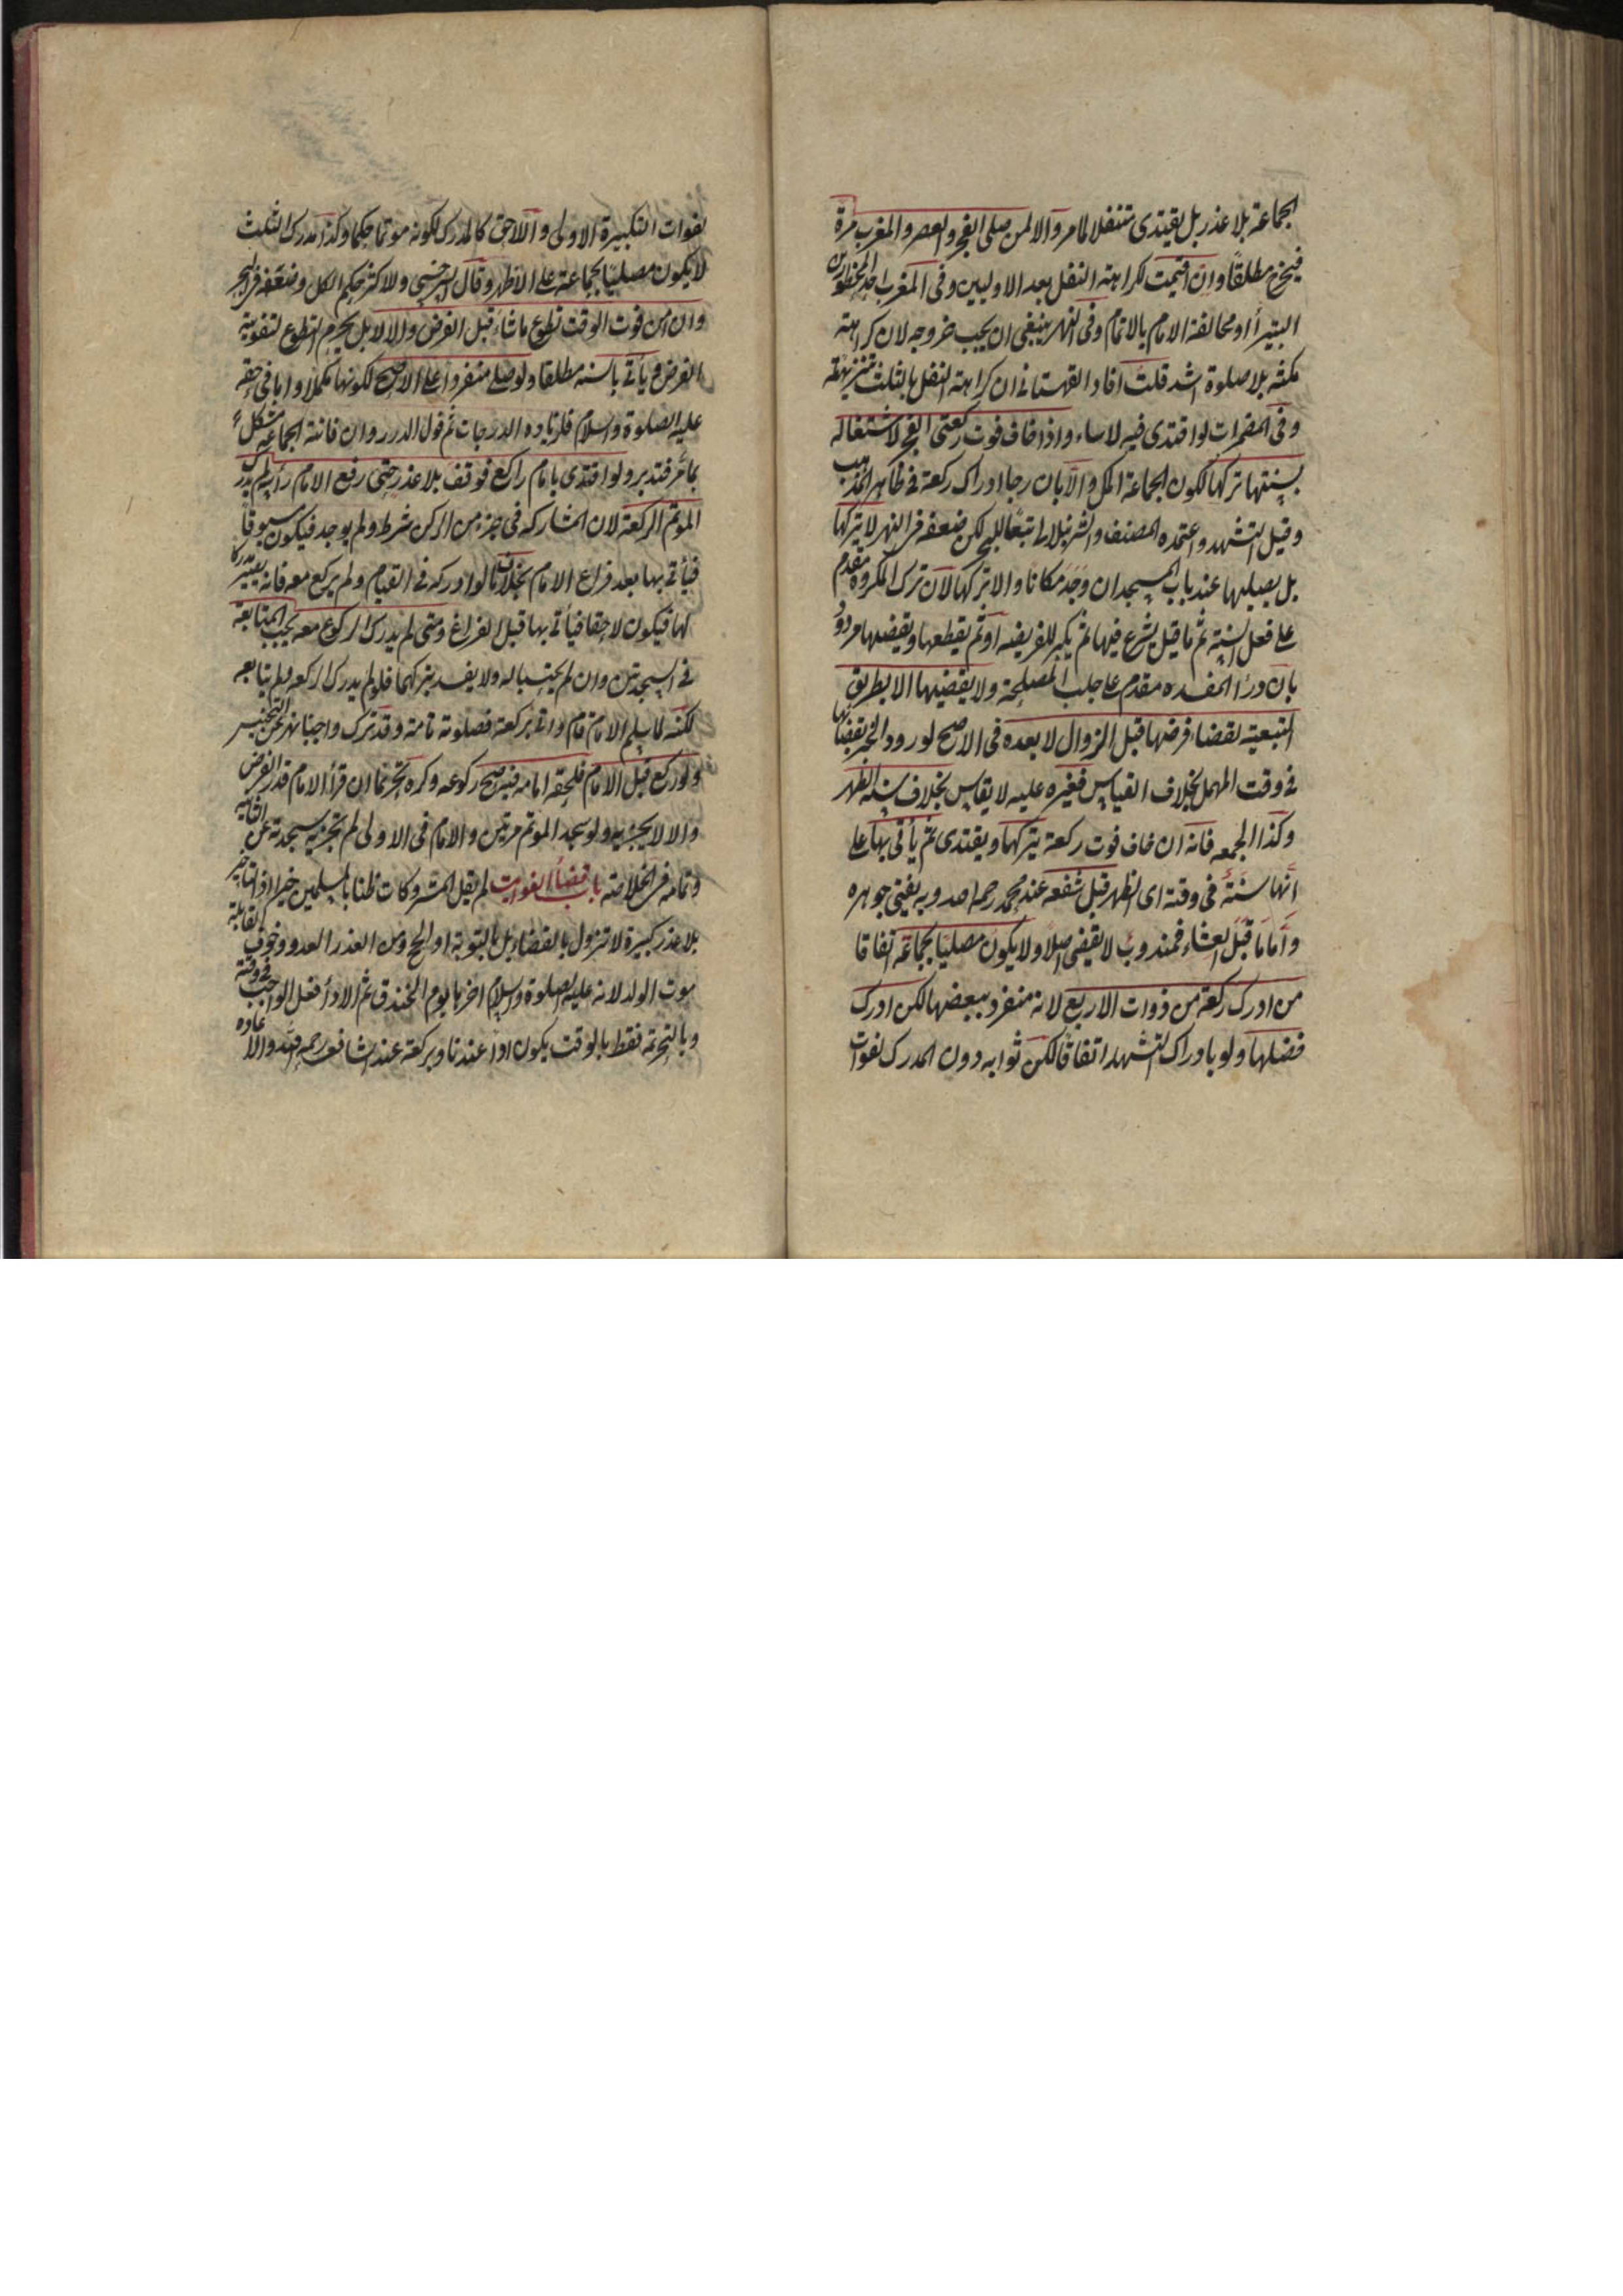 الجماعة بلا عذر بل يقتدى متنفلا لما مر والا لمن صلى الفجر والعصر والمغرب مرة
فيخرج مطلقا وان اقيمت لكراهة النفل بعد الاوليين وفى المغرب احد المحظورين
البتيرأ او مخالفة الامام بالاتمام وفى النهر ينبغى ان يجب خروجه لان كراهة
مكثه بلا صلوة اشد قلت افاد القهستانى ان كراهة النفل بالثلث تنزيهية
وفى المضمرات لو اقتدى فيه لاساء واذا خاف فوت ركعتى الفجر لاشتغاله
بسنتها تركها لكون الجماعة اكمل والا بان رجا ادراك ركعة فى ظاهر المذهب
وقيل التشهد واعتمده المصنف والشرنبلالى تبعا للبحر لكن ضعفه فى النهر لا يتركها
بل يصليها عند باب المسجد ان وجد مكانا والا تركها لان ترك المكروه مقدم
على فعل السنة ثم ما قيل يشرع فيها ثم يكبر للفريضه او ثم يقطعها ويقضيها مردود
بان درأ المفسده مقدم على جلب المصلحة ولا يقضيها الا بطريق
التبعية لقضا فرضها قبل الزوال لا بعده فى الاصح لورود الخبر بقضائها
فى وقت المهمل بخلاف القياس فغيره عليه لا يقاس بخلاف سنة الظهر
وكذا الجمعه فانه ان خاف فوت ركعة يتركها ويقتدى ثم يأتى بها على
انها سنة فى وقته اى الظهر قبل شفعه عند محمد رحمه الله وبه يفتى جوهره
واما ما قبل العشاء فمندوب لا يقضى اصلا ولا يكون مصليا بجماعة اتفاقا
من ادرك ركعة من ذوات الاربع لانه منفرد ببعضها لكن ادرك
فضلها ولو بادراك التشهد اتفاقا لكن ثوابه دون المدرك لفوات
لفوات التكبيرة الاولى واللاحق كالمدرك لكونه مؤتما حكما وكذا مدرك الثلث
لا يكون مصليا بجماعة على الاظهر وقال السرخسى وللاكثر حكم الكل وضعفه فى البحر
وان امن فوت الوقت تطوع ما شاء قبل الفرض والا لا بل يحرم التطوع لتفويته
الفرض ويأتى بالسنه مطلقا ولو صلى منفردا على الاصح لكونها مكملا واما فى حقه
عليه الصلوة والسلام فلزياده الدرجات ثم قول الدرر وان فاتته الجماعه مشكل
بما مر فتدبر ولو اقتدى بامام راكع فوقف بلا عذر حتى رفع الامام رأسه لم يدرك
المؤتم الركعة لان المشاركه فى جزء من الركن شرط ولم يوجد فيكون مسبوقا
فيأتى بها بعد فراغ الامام بخلاف ما لو ادركه فى القيام ولم يركع معه فانه يصير مدركا
لها فيكون لاحقا فيأتى بها قبل الفراغ ومتى لم يدرك الركوع معه يجب المتابعة
فى السجدتين وان لم يحتسبا له ولا يفسد بتركهما فلو لم يدرك الركعه ولم يتابعه
لكنه لما سلم الامام قام واتى بركعة فصلوته تامة وقد ترك واجبا نهر عن التجنيس
ولو ركع قبل الامام فلحقه امامه فيه صح ركوعه وكره تحريما ان قرأ الامام قدر الفرض
والا لا يجزيه ولو سجد المؤتم مرتين والامام فى الاولى لم تجزيه سجدته عن الثانية
وتمامه فى الخلاصه باب قضأ الفوايت لم يقل المتروكات ظنا بالمسلمين خيرا اذ التاخير
بلا عذر كبيرة لا تزول بالقضاء بل بالتوبة او الحج ومن العذر العدو وخوف القابلة
موت الولد لانه عليه الصلوة والسلام اخرها يوم الخندق ثم الادأ فعل الواجب فى وقته
وبالتحريمة فقط بالوقت يكون ادأ عندنا وبركعة عند الشافعى رحمه الله والاعاده